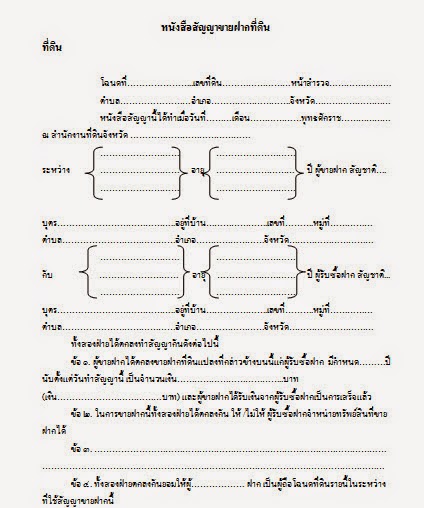 หนังสือสัญญาขายฝากที่ดิน
ที่ดิน
โฉนดที่.....................เลขที่ดิน......................หน้าสำรวจ....................
ตำบล.......................อำเภอ..........................จังหวัด........................
หนังสือสัญญานี้ได้ทำเมื่อวันที่.........เดือน.................พุทธศักราช................
ณ สำนักงานที่ดินจังหวัด .......................................
ระหว่าง .......................... อายุ .......................... ปี ผู้ขายฝาก สัญชาติ....
บุตร.......................................อยู่ที่บ้าน....................เลขที่.........หมู่ที่..............
ตำบล.....................................อำเภอ......................จังหวัด...........................
กับ .......................... อายุ .......................... ปี ผู้รับซื้อฝาก สัญชาติ...
บุตร.......................................อยู่ที่บ้าน....................เลขที่.........หมู่ที่..............
ตำบล.....................................อำเภอ......................จังหวัด...........................
ทั้งสองฝ่ายได้ตกลงทำสัญญากันดังต่อไปนี้
ข้อ ๑. ผู้ขายฝากได้ตกลงขายฝากที่ดินแปลงที่กล่าวข้างบนนี้แก่ผู้รับซื้อฝาก มีกำหนด........ปี
นับตั้งแต่วันทำสัญญานี้ เป็นจำนวนเงิน..................................บาท
(เงิน...................................บาท) และผู้ขายฝากได้รับเงินจากผู้รับซื้อฝากเป็นการเสร็จแล้ว
ข้อ ๒. ในการขายฝากนี้ทั้งสองฝ่ายได้ตกลงกัน ให้ /ไม่ให้ ผู้รับซื้อฝากจำหน่ายทรัพย์สินที่ขาย
ฝากได้
ข้อ ๓. ..............................................................................................
.................................................................................................................
ข้อ ๔. ทั้งสองฝ่ายตกลงกันยอมให้ผู้................. ฝาก เป็นผู้ถือโฉนดที่ดินรายนี้ในระหว่าง
ที่ใช้สัญญาขายฝากนี้